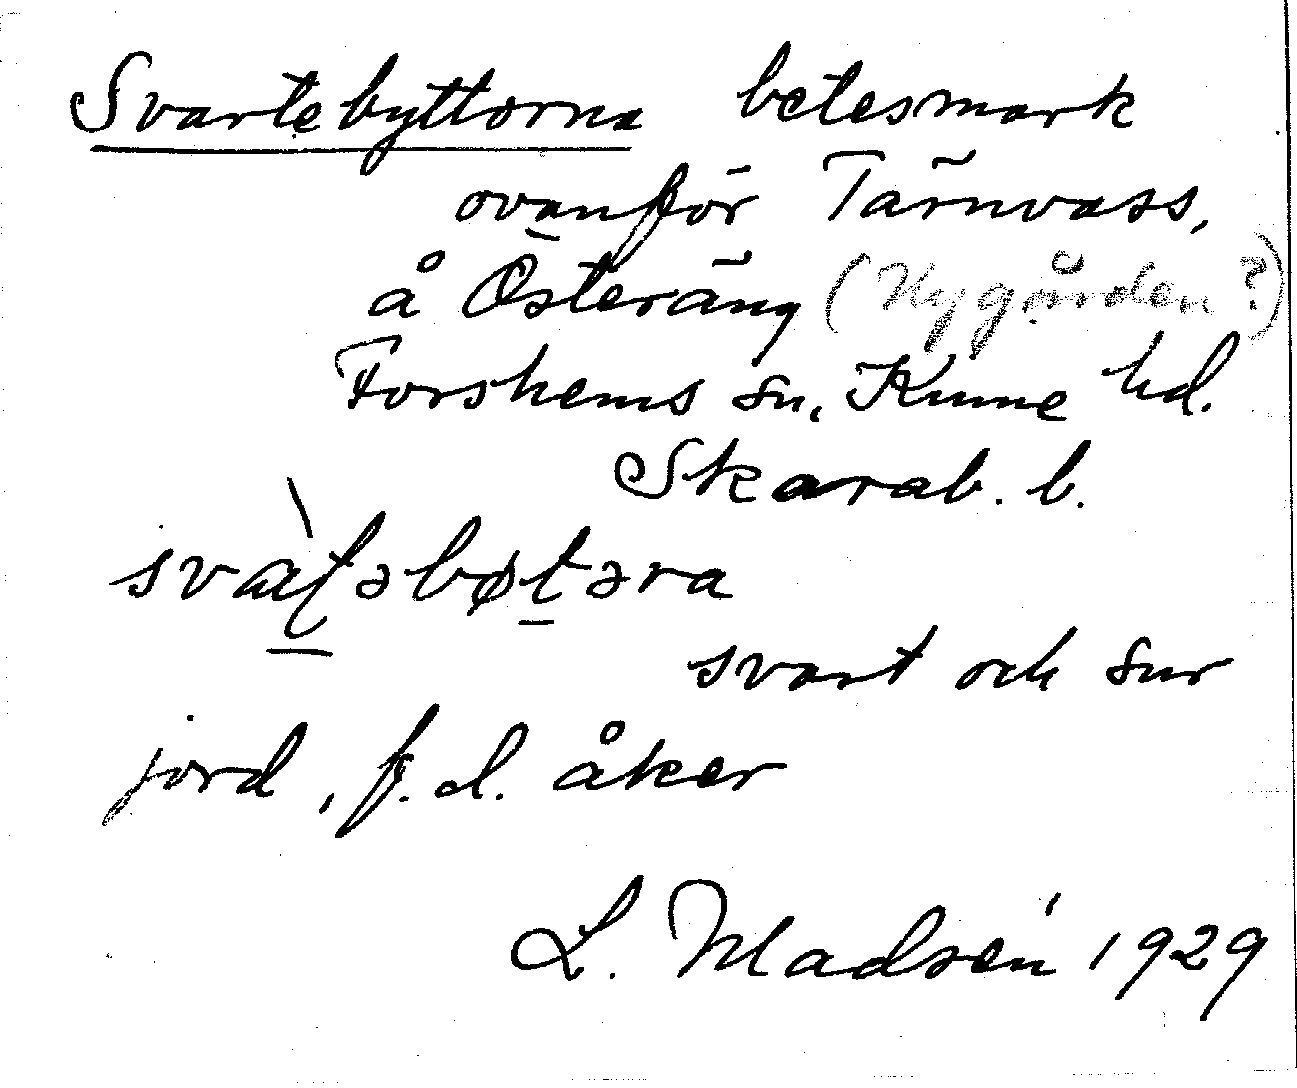 Svartebyttorna betesmark
ovanför Tärnvass,
å Österäng (Nygården?)
Forshems sn, Kinne hd.
Skarab. l.
svat̀əbøtəra
svart och sur
jord, f.d. åker
L. Madsén 1929